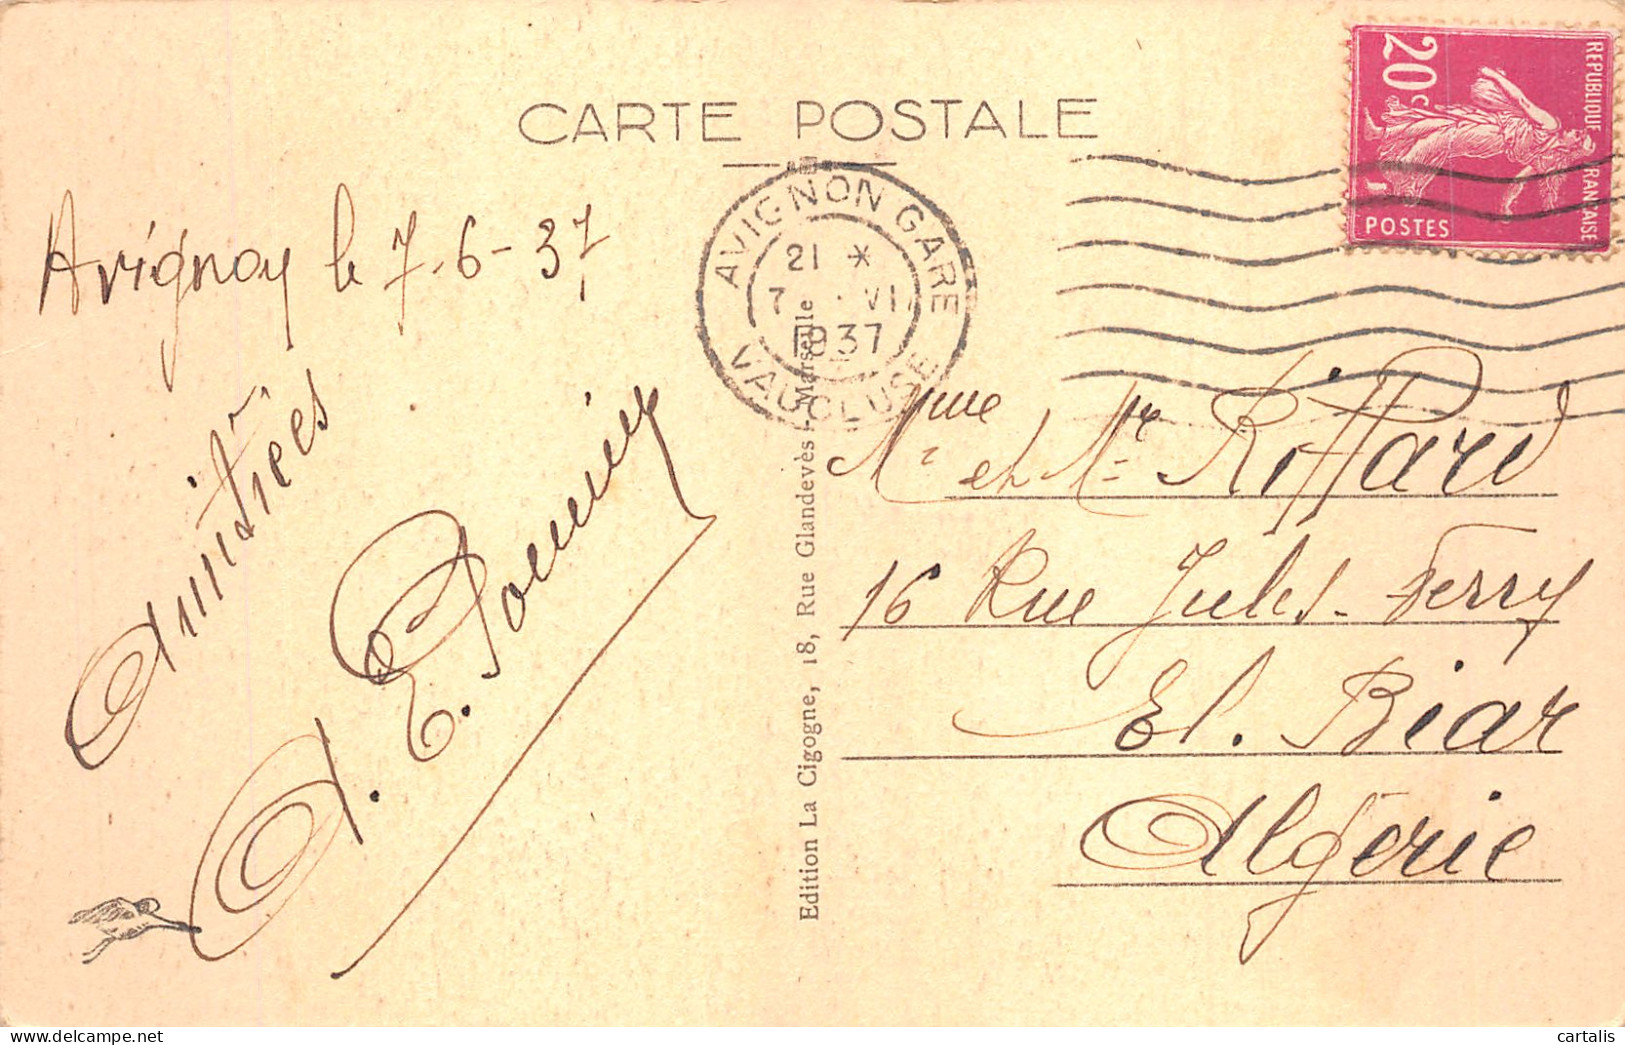 CARTE POSTALE
REPUBLIQUE FRANÇAISE
20c
POSTES
AVIGNON GARE
21 *
7 VI
1937
VAUCLUSE
Avignon le 7-6-37
Amitiées
A. E.
Mme et Mr Riffard
16 Rue Jules-Ferry
El. Biar
Algérie
Edition La Cigogne, 18, Rue Glandevès - Marseille
cartalis